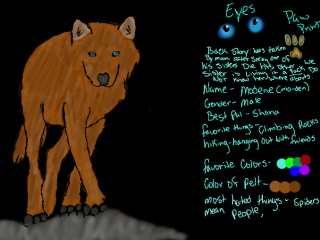 Eyes
Paw Print
Back Story was taken
by man after seeing one of
his sisters Die His other
Sister is Living in a pack We Do
Not know her where abouts
Name - Modene (mo-den)
Gender - Male
Best Pal - Shona
favorite things - Climbing Rocks
hiking-hanging out with friends
favorite Colors -
Color of Pelt -
most hated things - Spiders
mean People,